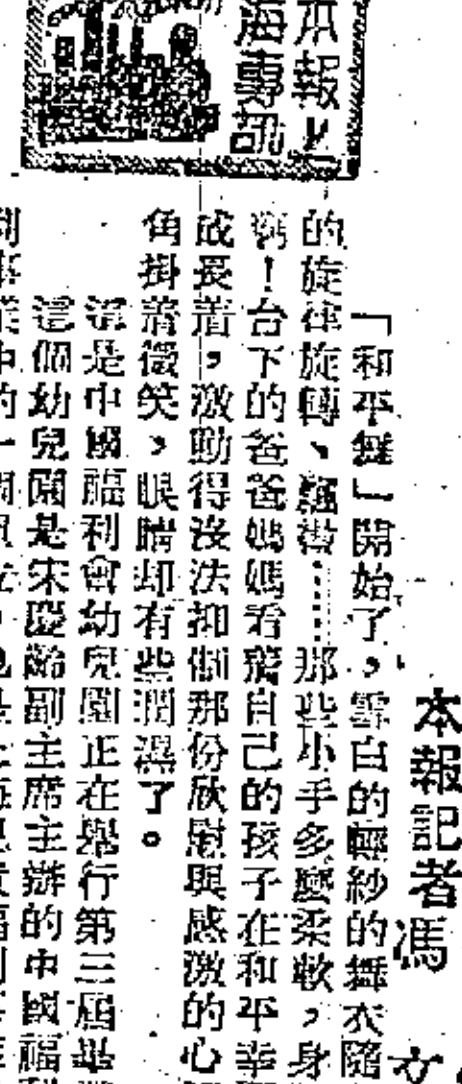 本報上
海專訊
本報記者馮 文
「和平舞」開始了，雪白的輕紗的舞衣隨
的旋律旋轉、飄揚……那些小手多麼柔軟，身
啊！台下的爸爸媽媽看着自己的孩子在和平幸
成長着，激動得沒法抑制那份欣慰與感激的心
角掛着微笑，眼睛却有些潤濕了。
這是中國福利會幼兒園正在舉行第三屆畢
這個幼兒園是宋慶齡副主席主辦的中國福